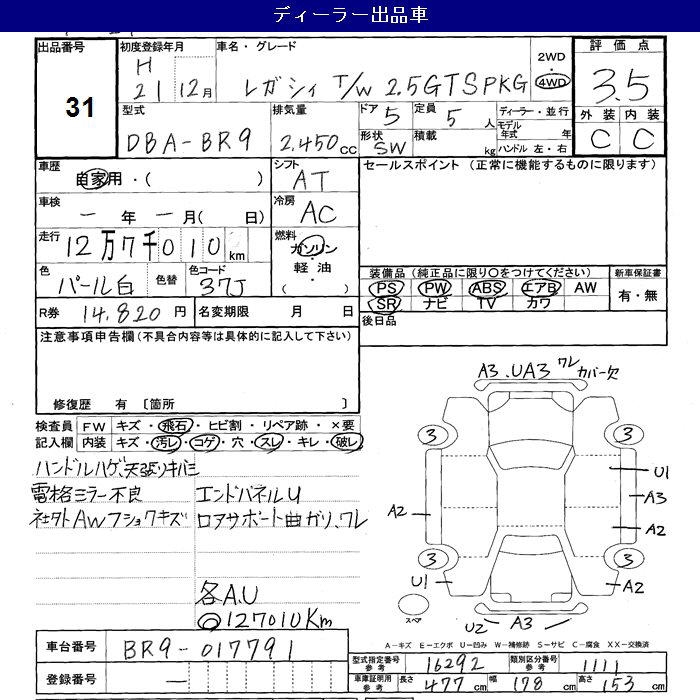 ディーラー出品車
出品番号 31
初度登録年月 H 21 12月
車名・グレード レガシィ T/W 2.5GTSPKG
2WD
4WD
評価点 3.5
外装 内装
C C
型式 DBA-BR9
排気量 2,450cc
ドア 5
定員 5人
形状 SW
積載 kg
ディーラー・並行
モデル年式 年
ハンドル 左・右
車歴 自家用・( )
シフト AT
セールスポイント (正常に機能するものに限ります)
車検 ー年ー月( 日)
冷房 AC
走行 12万7千010km
燃料 ガソリン・軽油・( )
色 パール白 色替
色コード 37J
装備品 (純正品に限り○をつけてください)
PS PW ABS エアB AW
SR ナビ TV カワ
新車保証書
有・無
R券 14,820円
名変期限 月 日
後日品
注意事項申告欄(不具合内容等は具体的に記入して下さい)
修復歴 有 〔箇所 〕
検査員記入欄
FW キズ・飛石・ヒビ割・リペア跡・×要
内装 キズ・汚レ・コゲ・穴・スレ・キレ・破レ
ハンドルハゲ、天張りキバミ
電格ミラー不良
社外AWフショクキズ
エンドパネルU
ロアサポート曲ガリ、ワレ
各A.U
◎127010Km
A3.UA3 ワレ カバー欠
3 3
U1
A3
A2 A2
3 3
U1 A2
スペア
U2 A3
A-キズ E-エクボ U-凹み W-補修跡 S-サビ C-腐食 XX-交換済
車台番号 BR9-017791
登録番号 ー
型式指定番号参考 16292
類別区分番号参考 1111
車庫証明用参考 長さ 477cm 幅 178cm 高さ 153cm